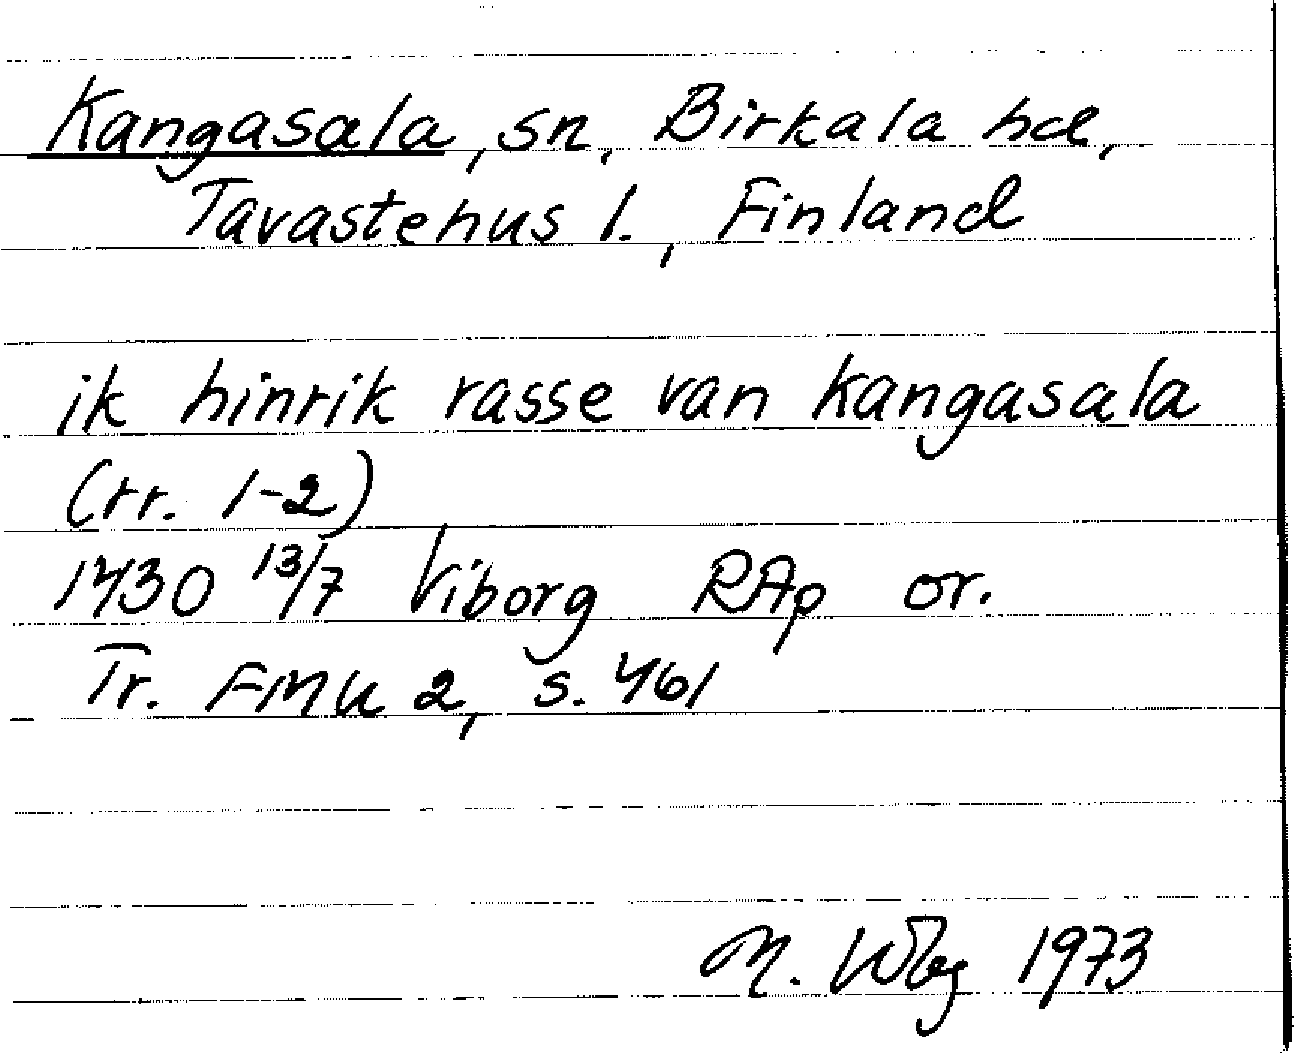 Kangasala, sn, Birkala hd,
Tavastehus l., Finland
ik hinrik rasse van kangasala
(rr. 1-2)
1430 13/7 Viborg RAp or.
Tr. FMU 2, s. 461
M. 1973